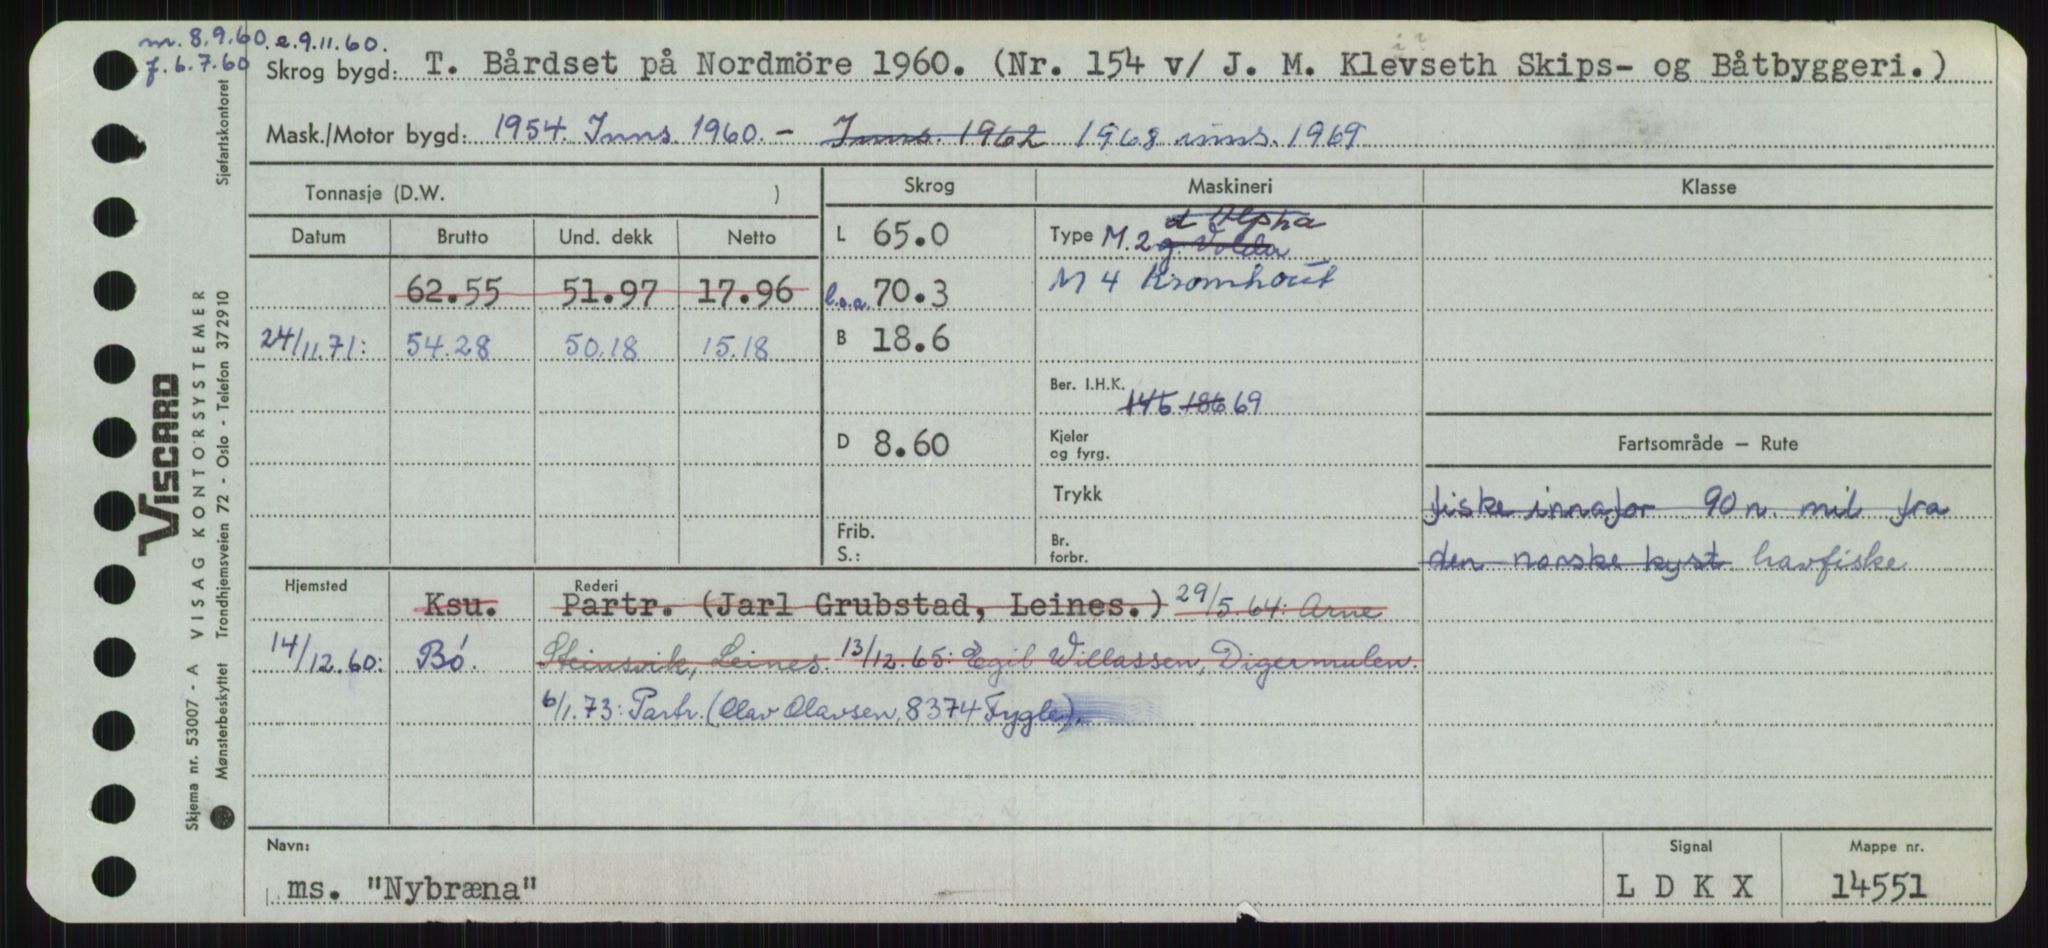 m. 8.9.60. e. 9.11.60.
f. 6.7.60
Skrog bygd: T. Bårdset på Nordmöre 1960. (Nr. 154 v/ J. M. Klevseth Skips- og Båtbyggeri.)
Mask./Motor bygd: 1954. Inns. 1960. - Inns. 1962 1968 inns. 1969
Tonnasje (D.W. )
Skrog
Maskineri
Klasse
Datum Brutto Und. dekk Netto
L 65.0
Type M. 2 d Alpha
g. Volda
62.55 51.97 17.96
l.o.a. 70.3
M 4 Kromhout
24/11.71: 54.28 50.18 15.18
B 18.6
Ber. I.H.K.
145 186 69
D 8.60
Kjeler
og fyrg.
Fartsområde — Rute
Trykk
fiske innafor 90 n. mil fra
Frib.
S.:
Br.
forbr.
den norske kyst. havfiske
Hjemsted
Rederi
Ksu. Partr. (Jarl Grubstad, Leines.) 29/5.64: Arne
14/12.60: Bö. Steinsvik, Leines. 13/12.65: Egil Willassen, Digermulen.
6/1.73: Partr. (Olav Olavsen, 8374 Fygle).
Navn:
Signal
Mappe nr.
ms. "Nybræna" L D K X 14551
VISCARD
Skjema nr. 53007 - A VISAG KONTORSYSTEMER
Mønsterbeskyttet Trondhjemsveien 72 - Oslo - Telefon 372910
Sjøfartskontoret